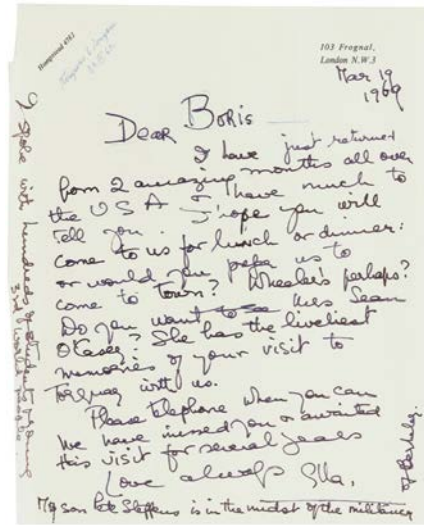 Hampstead 4581
103 Frognal,
London N.W.3
Mar 19
1969
Dear Boris
I have just returned
from 2 amazing months all over
the USA I have much to
tell you. I hope you will
come to us for lunch or dinner:
or would you prefer us to
come to Town? Wheeler's perhaps?
Do you want to see Mrs Sean
O'Casey? She has the liveliest
memories of your visit to
Torquay with us.
Please telephone when you can
We have missed you & awaited
this visit for several years
Love always Ella.
My son Pete Steffens is in the midst of the militancy
of Berkeley.
I spoke with hundreds of students & young
3rd world people.